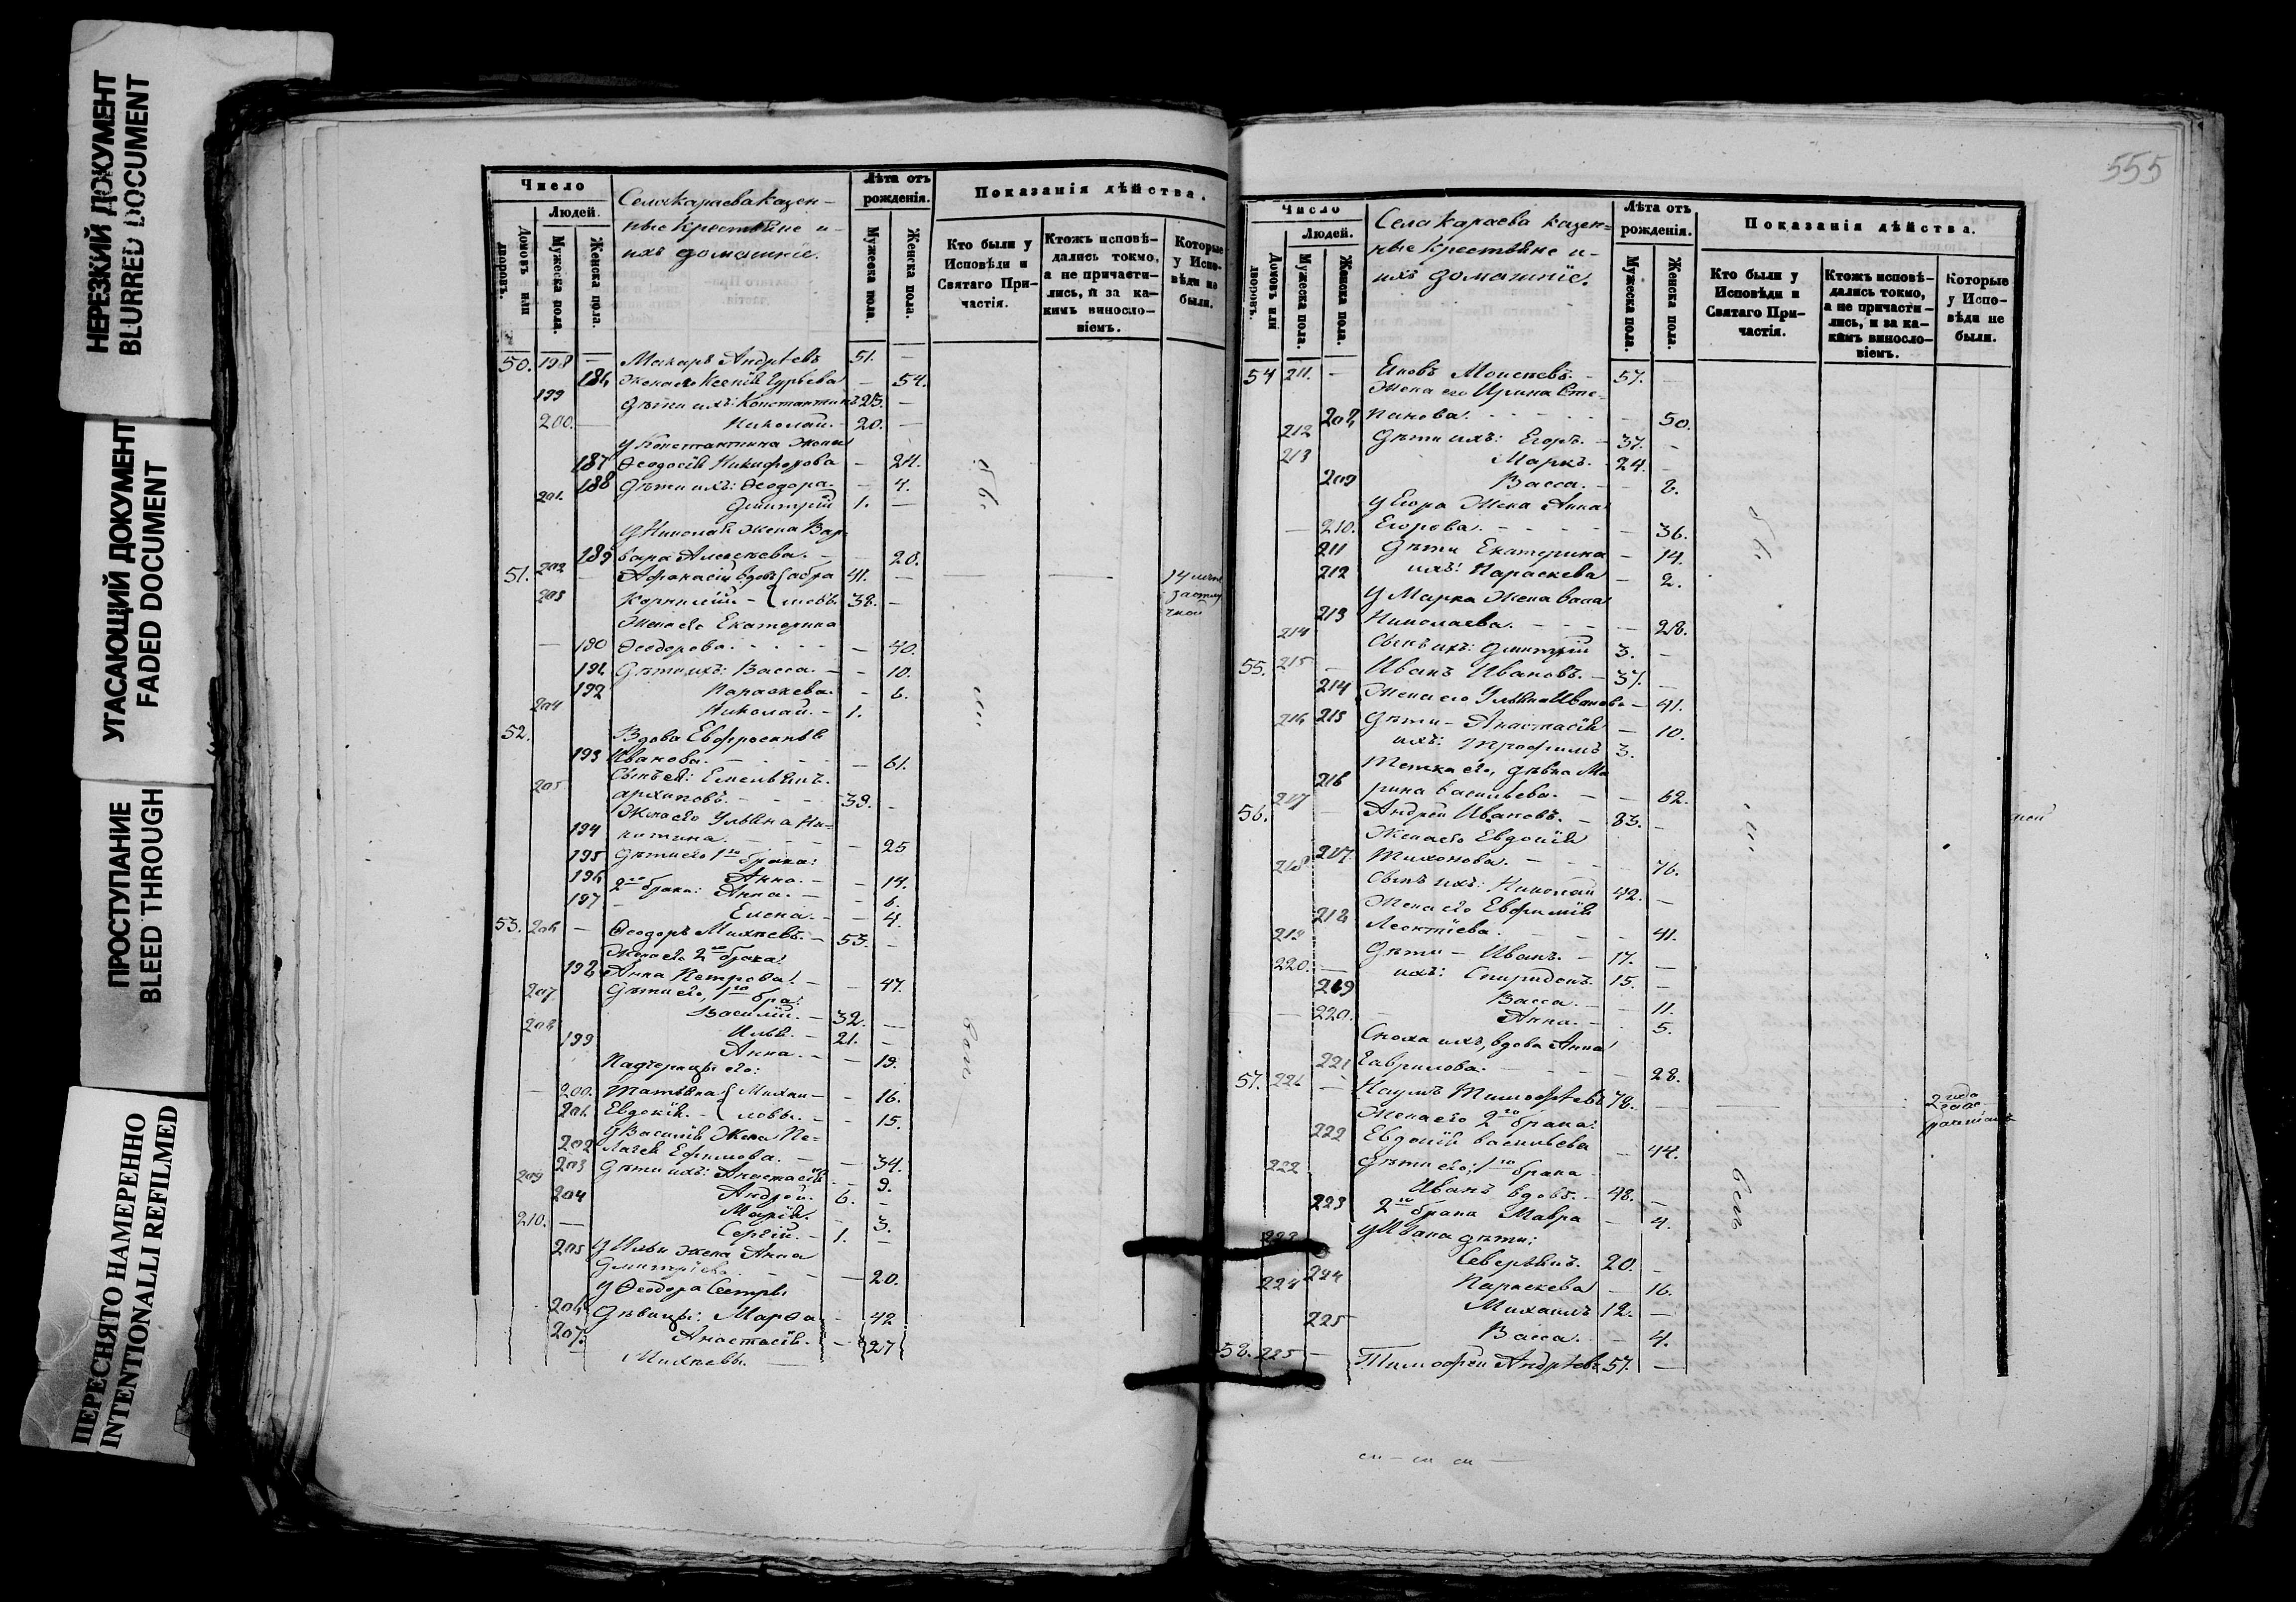 НЕРЕЗКИЙ ДОКУМЕНТ
BLURRED DOCUMENT
УГАСАЮЩИЙ ДОКУМЕНТ
FADED DOCUMENT
ПРОСТУПАНИЕ
BLEED THROUGH
ПЕРЕСНЯТО НАМЕРЕННО
INTENTIONALLI REFILMED
Число
Домовъ или дворовъ.
Людей.
Мужеска пола.
Женска пола.
Села Караева казен-
ные крестьяне и
ихъ домашніе.
Лѣта отъ рожденія.
Мужеска пола.
Женска пола.
Показанія дѣйства.
Кто были у Исповѣди и Святаго Причастія.
Ктожъ исповѣдались токмо, а не причастились, и за какимъ винословіемъ.
Которые у Исповѣди не были.
50. 198 — Макаръ Андреевъ 51. —
186 Жена его Ксенія Гурьева — 54.
199 Дѣти ихъ: Константинъ 25. —
200. — Николай. - 20. —
У Константина жена
187 Ѳеодосія Никифорова — 24.
188 Дѣти ихъ: Ѳеодора. — 4.
201. Дмитрій 1. —
У Николая жена Вар-
189 вара Алексѣева. — 20.
51. 202 — Аѳанасій вдовъ 41. —
203 Корнилій 38. —
Жена его Екатерина
— 190 Ѳеодорова. — 40.
191 Дѣти ихъ: Васса. — 10.
192 Параскева. — 6.
204 Николай. — 1.
52. Вдова Евфросинія
193 Иванова. — 61.
205 Сынъ ея: Емельянъ
Архиповъ. — 39. -
Жена его Ульяна Ни-
194 китина. — 25
195 Дѣти его 1го брака:
Анна. — 14.
196 2го брака: Анна. — 6.
197 Елена. — 4.
53. 206 — Ѳеодоръ Михѣевъ. — 53. -
Жена его 2го брака:
198 Анна Петрова. — 47.
207 Дѣти его, 1го бра:
Василій. — 32. —
208 Илья. — 21. -
199 Анна. — 19.
Падчерицы его:
— 200. Татьяна Михаи- — 16.
201 Евдокія. ловы. — 15.
У Василія жена Пе-
202 лагея Ефимова. — 34.
203 Дѣти ихъ: Анастасія — 9.
209 Андрей. 6. -
204 Марія. — 3.
210. — Сергій. — 1. —
205 У Ильи жена Анна
Дмитріева — 20.
У Ѳеодора сестры
206 Дѣвицы: Марѳа — 42
207. Анастасія. — 27
Михѣевы.
555
Число
Домовъ или дворовъ.
Людей.
Мужеска пола.
Женска пола.
Села Караева казен-
ные крестьяне и
ихъ домашніе.
Лѣта отъ рожденія.
Мужеска пола.
Женска пола.
Показанія дѣйства.
Кто были у Исповѣди и Святаго Причастія.
Ктожъ исповѣдались токмо, а не причастились, и за какимъ винословіемъ.
Которые у Исповѣди не были.
54 211. — Моисеевъ. — 57. —
Жена его Ирина Сте-
208 панова. — 50.
212 Дѣти ихъ: Егоръ. — 37. -
213 Маркъ. 24. -
209 Васса. — 8.
У Егора жена Анна
— 210. Егорова. — 36.
211 Дѣти Екатерина — 14.
212 ихъ: Параскева — 2.
У Марка жена Васса
213 Николаева. — 28.
214 Сынъ ихъ: Дмитрій 3. -
55. 215 — Иванъ Ивановъ. — 37. —
214 Жена его Ульяна Иванова — 41.
216 215 Дѣти — Анастасія — 10.
ихъ: Трофимъ 3.
Тетка его, дѣвка Ма-
216 рина Васильева. — 62.
56. 217 — Андрей Ивановъ. — 83. -
Жена его Евдокія
217. Тихонова. — 76.
218 Сынъ ихъ: Николай 42. —
Жена его Евфимія
218 Леонтіева. — 41.
219 Дѣти — Иванъ. — 17. —
220. — ихъ: Спиридонъ. 15. -
219 Васса. — 11.
— 220. Анна. — 5.
Сноха ихъ, вдова Анна
221 Гаврилова. — 28.
57. 221 — Наумъ Тимофѣевъ 78. —
Жена его 2го брака:
222 Евдокія Васильева — 44.
222 Дѣти его; 1го брака
Иванъ вдовъ. — 48. —
223 2го брака Мавра — 4.
У Ивана дѣти:
223 Северьянъ. 20. -
224 Параскева — 16.
224 Михаилъ 12. —
225 Васса. — 4.
58. 225 — Тимофей Андреевъ 57. —